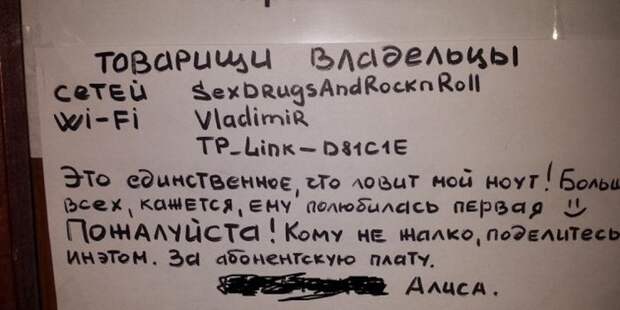 Товарищи владельцы
сетей SexDrugsAndRocknRoll
Wi-Fi Vladimir
TP_Link-D81C1E
Это единственное, что ловит мой ноут! Больш
всех, кажется, ему полюбилась первая ツ
Пожалуйста! Кому не жалко, поделитесь
инэтом. За абонентскую плату.
Алиса.